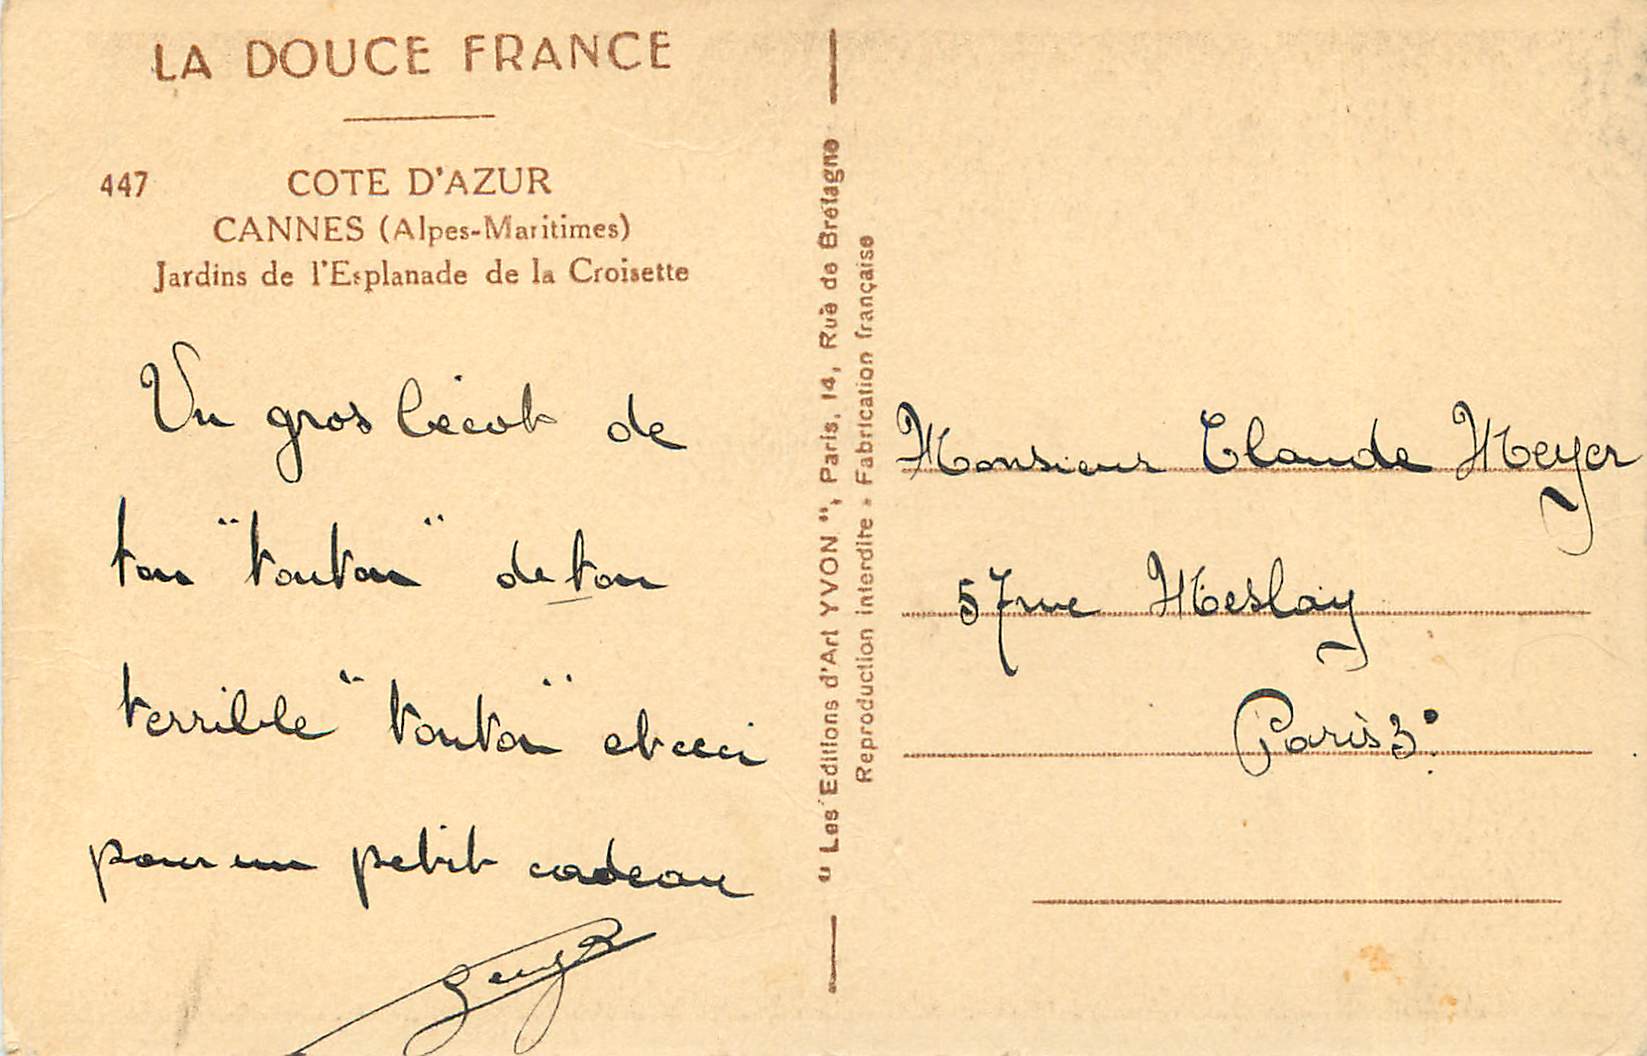 LA DOUCE FRANCE
447 COTE D'AZUR
CANNES (Alpes-Maritimes)
Jardins de l'Esplanade de la Croisette
Un gros bécot de
ton "tonton" de ton
terrible "tonton" et ceci
pour un petit cadeau
" Les Editions d'Art YVON ", Paris, 14, Rue de Bretagne
Reproduction interdite - Fabrication française
Monsieur Claude Meyer
57 rue Meslay
Paris 3°